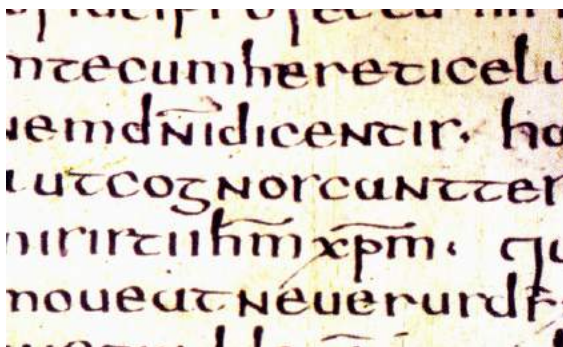 tecumhereticelu
emdn̄idicentis· ho
utcognoscanttes
isistiih̄mxp̄m· qu
moueatneuerusds̄